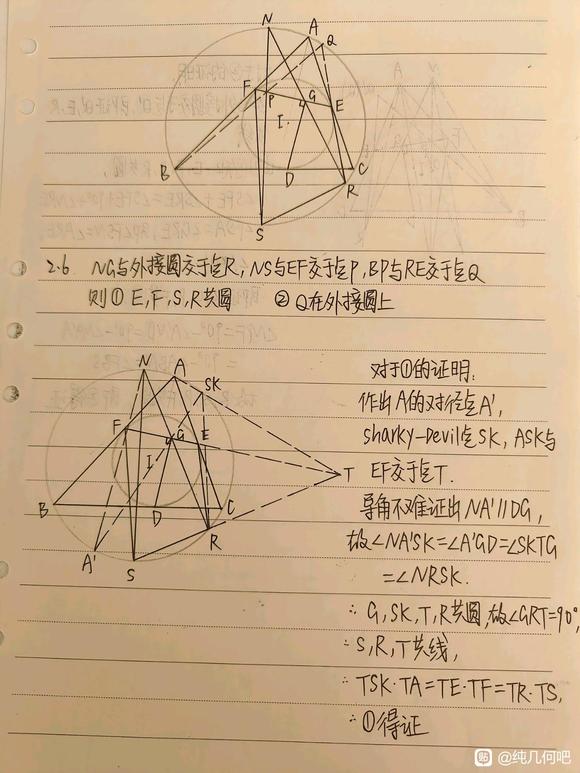 N
A
Q
F
P
G
E
I
B
D
C
R
S
2.6 NG与外接圆交于点R,NS与EF交于点P,BP与RE交于点Q
则① E,F,S,R共圆 ② Q在外接圆上
N
A
SK
F
G
E
I
T
B
D
C
R
A'
S
对于①的证明:
作出A的对径点A',
sharky-Devil点SK,ASK与
EF交于点T.
导角不难证出NA'//DG,
故∠NA'SK=∠A'GD=∠SKTG
=∠NRSK.
∴G,SK,T,R共圆,故∠GRT=90°,
∴S,R,T共线,
∴TSK·TA=TE·TF=TR·TS,
∴①得证
贴 @纯几何吧